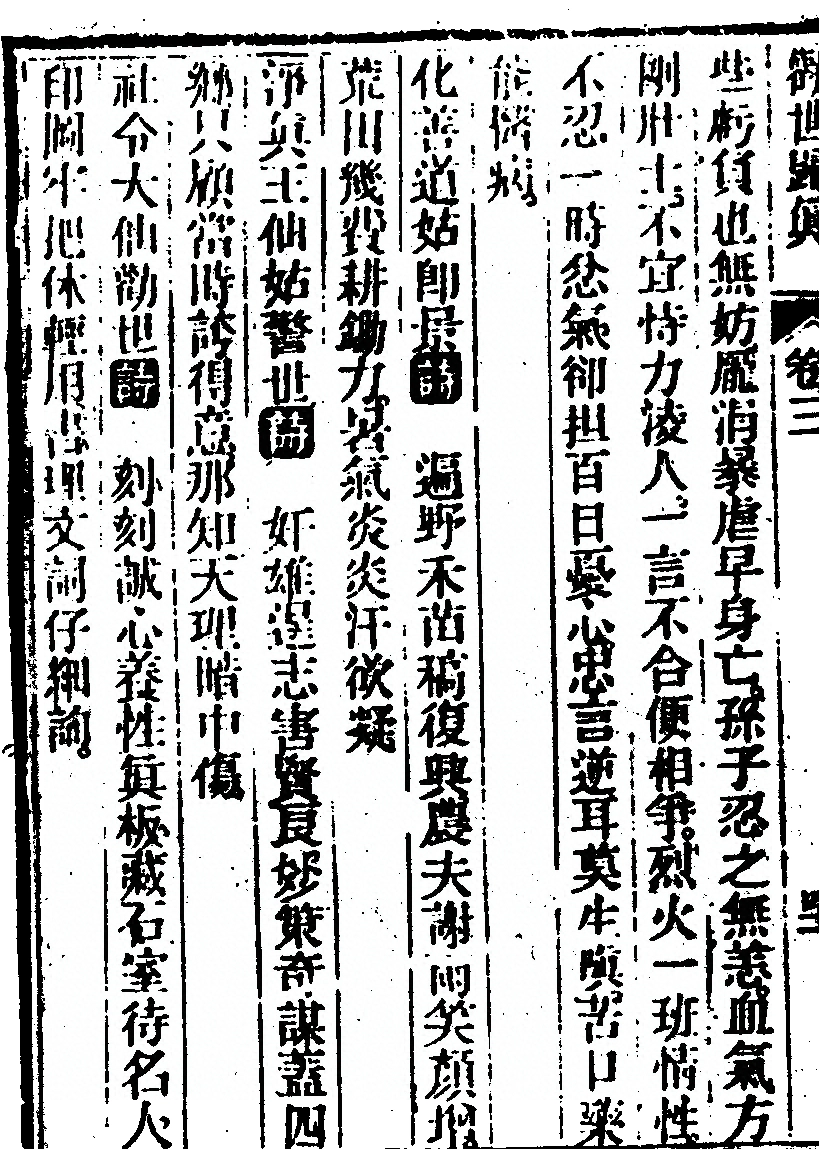 世歸真 卷三
些虧負也無妨罷消暴虐早身亡孫子忍之無恙血氣方
剛壯士不宜恃力淩人一言不合便相爭烈火一班情性
不忍一時忿氣卻担百日憂心忠言逆耳莫生嗔苦口藥
能醫病
化善道姑即景詩 遍野禾苗稿復興農夫謝雨笑顏增
荒田幾費耕鋤力暑氣炎炎汗欲凝
淨真王仙姑警世詩 奸雄逞志害賢良妙策奇謀蓋四
只顧當時誇得意那知天理暗中傷
社令大仙勸世詩 刻刻誠心養性真板藏石室待名人
印閱牢把休輕用書理文詞仔細詢